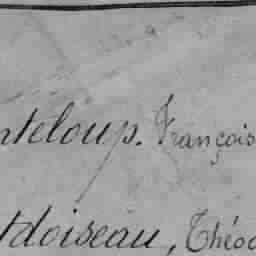 nteloup. François
tdoiseau, Théod